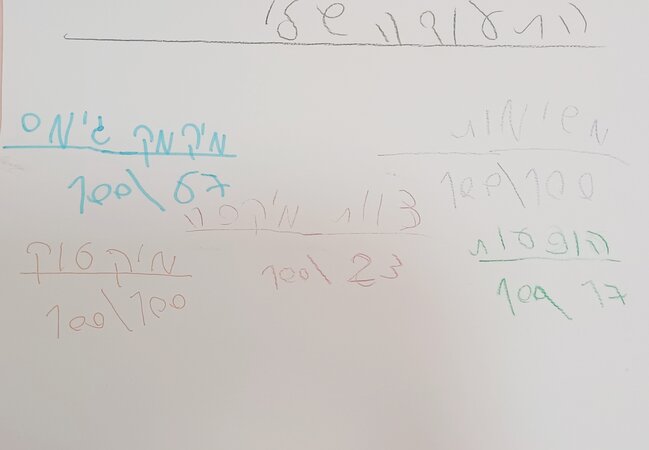 התעודה שלי
משימות
100\100
מיקמק גימס
100\67
צוות
100\23
הופעות
100\17
מיקטוק
100\100